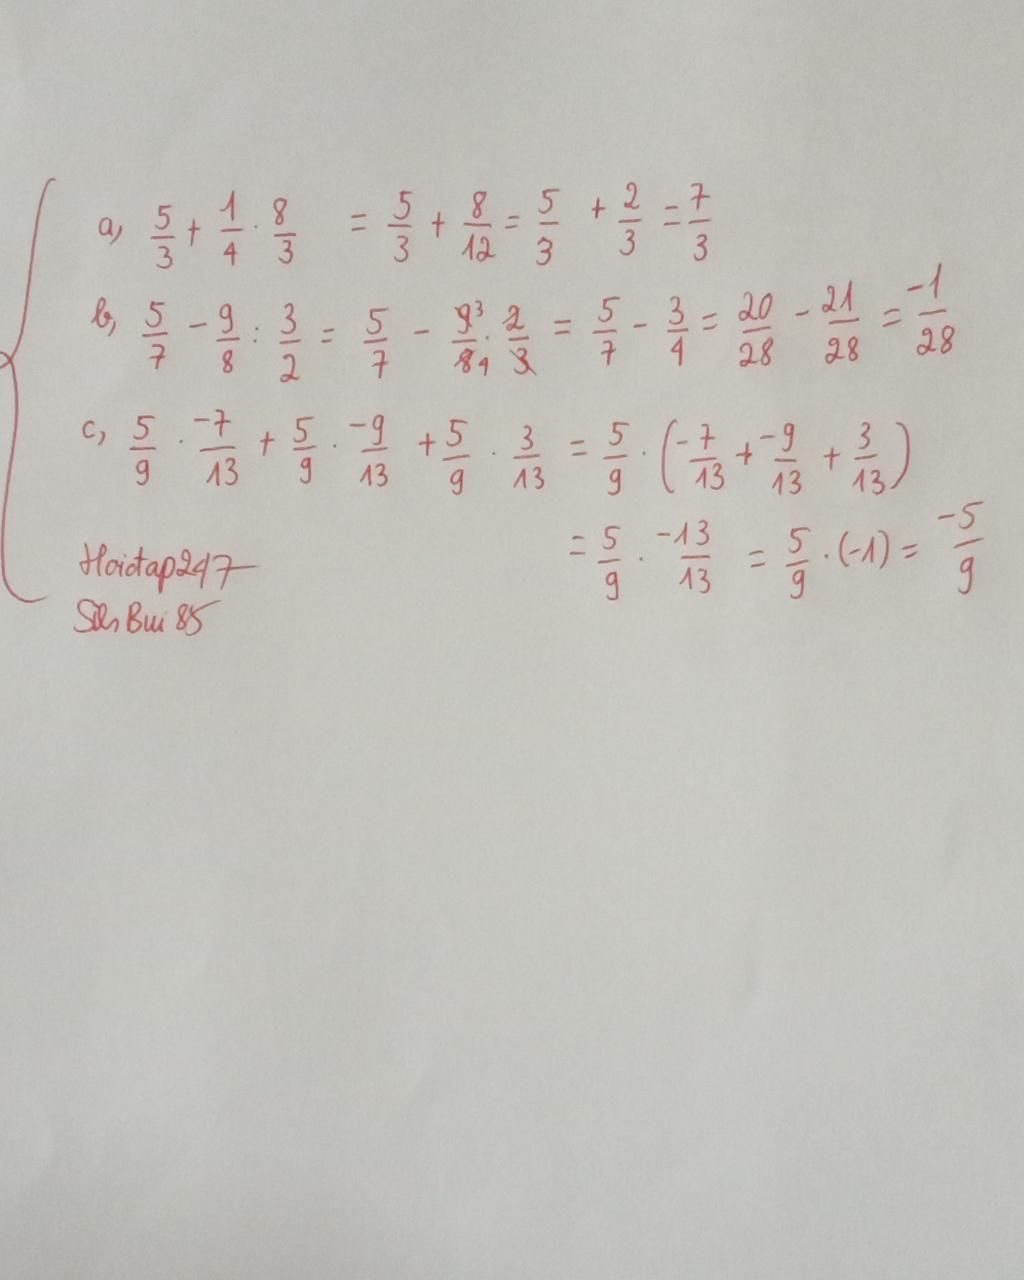 a, 5/3 + 1/4 . 8/3 = 5/3 + 8/12 = 5/3 + 2/3 = 7/3
b, 5/7 - 9/8 : 3/2 = 5/7 - 9³/8₄ . 2/3 = 5/7 - 3/4 = 20/28 - 21/28 = -1/28
c, 5/9 . -7/13 + 5/9 . -9/13 + 5/9 . 3/13 = 5/9 . (-7/13 + -9/13 + 3/13)
= 5/9 . -13/13 = 5/9 . (-1) = -5/9
Hoidap247
Bui 85